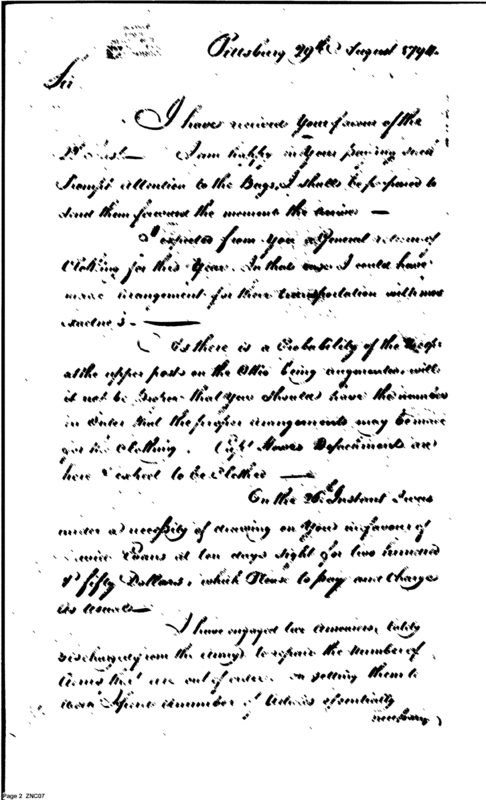 Pittsburg 29th August 1794.
Sir
I have received Your favour of the
Inst— I am happy in Your paying such
prompt attention to the Bags, I shall be prepared to
send them forward the moment the arrive —
I expected from You a General return of
Clothing for this Year. In that case I could have
made arrangement for their transportation with more
exactness —
As there is a Probability of the Troops
at the upper posts on the Ohio being augmented will
it not be proper that you should have the number
in Order that the proper arrangements may be made
for the Clothing. Capt Howes Detachments are
here & expect to be Clothed —
On the 26th Instant I was
under a necessity of drawing on You in favour of
Evans at ten days sight for two hundred
& fifty Dollars, which Please to pay and Charge
as usual—
I have engaged two Armourers, lately
discharged from the Army to repair the Number of
Arms that are out of order. on setting them to
work I find a number of Articles essentially
necessary
Page 2 ZNC07